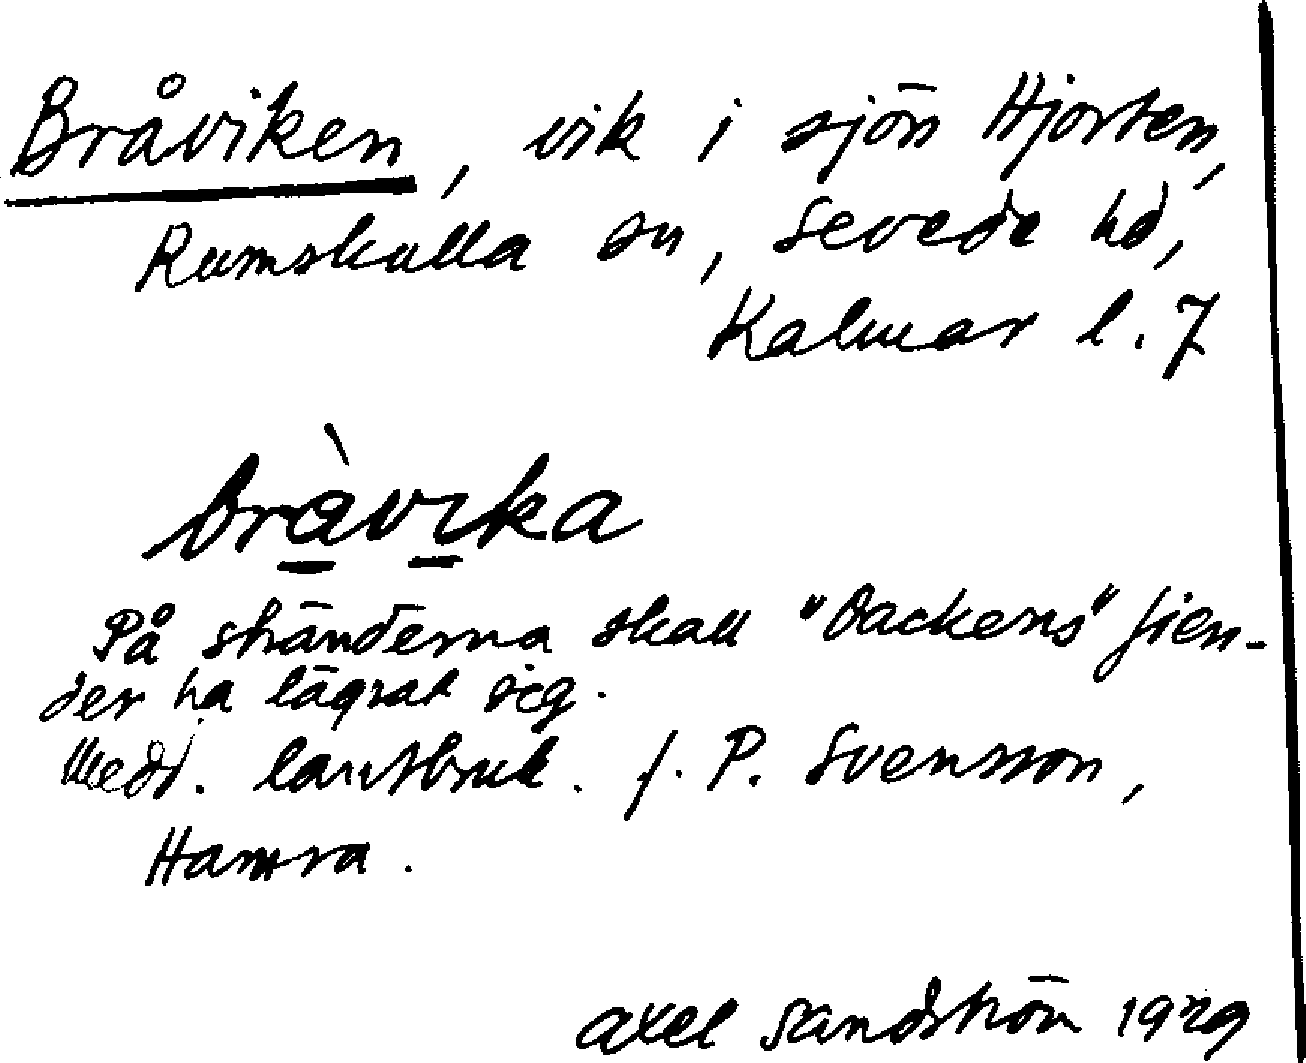 Bråviken, vik i sjön Hjorten,
Rumskulla sn, Sevede hd,
Kalmar l. 7
bràvika
På stränderna skall "Dackens" fien-
der ha lägrat sig.
Medd. lantbruk. J. P. Svensson,
Hamra.
Axel Sandström 1929